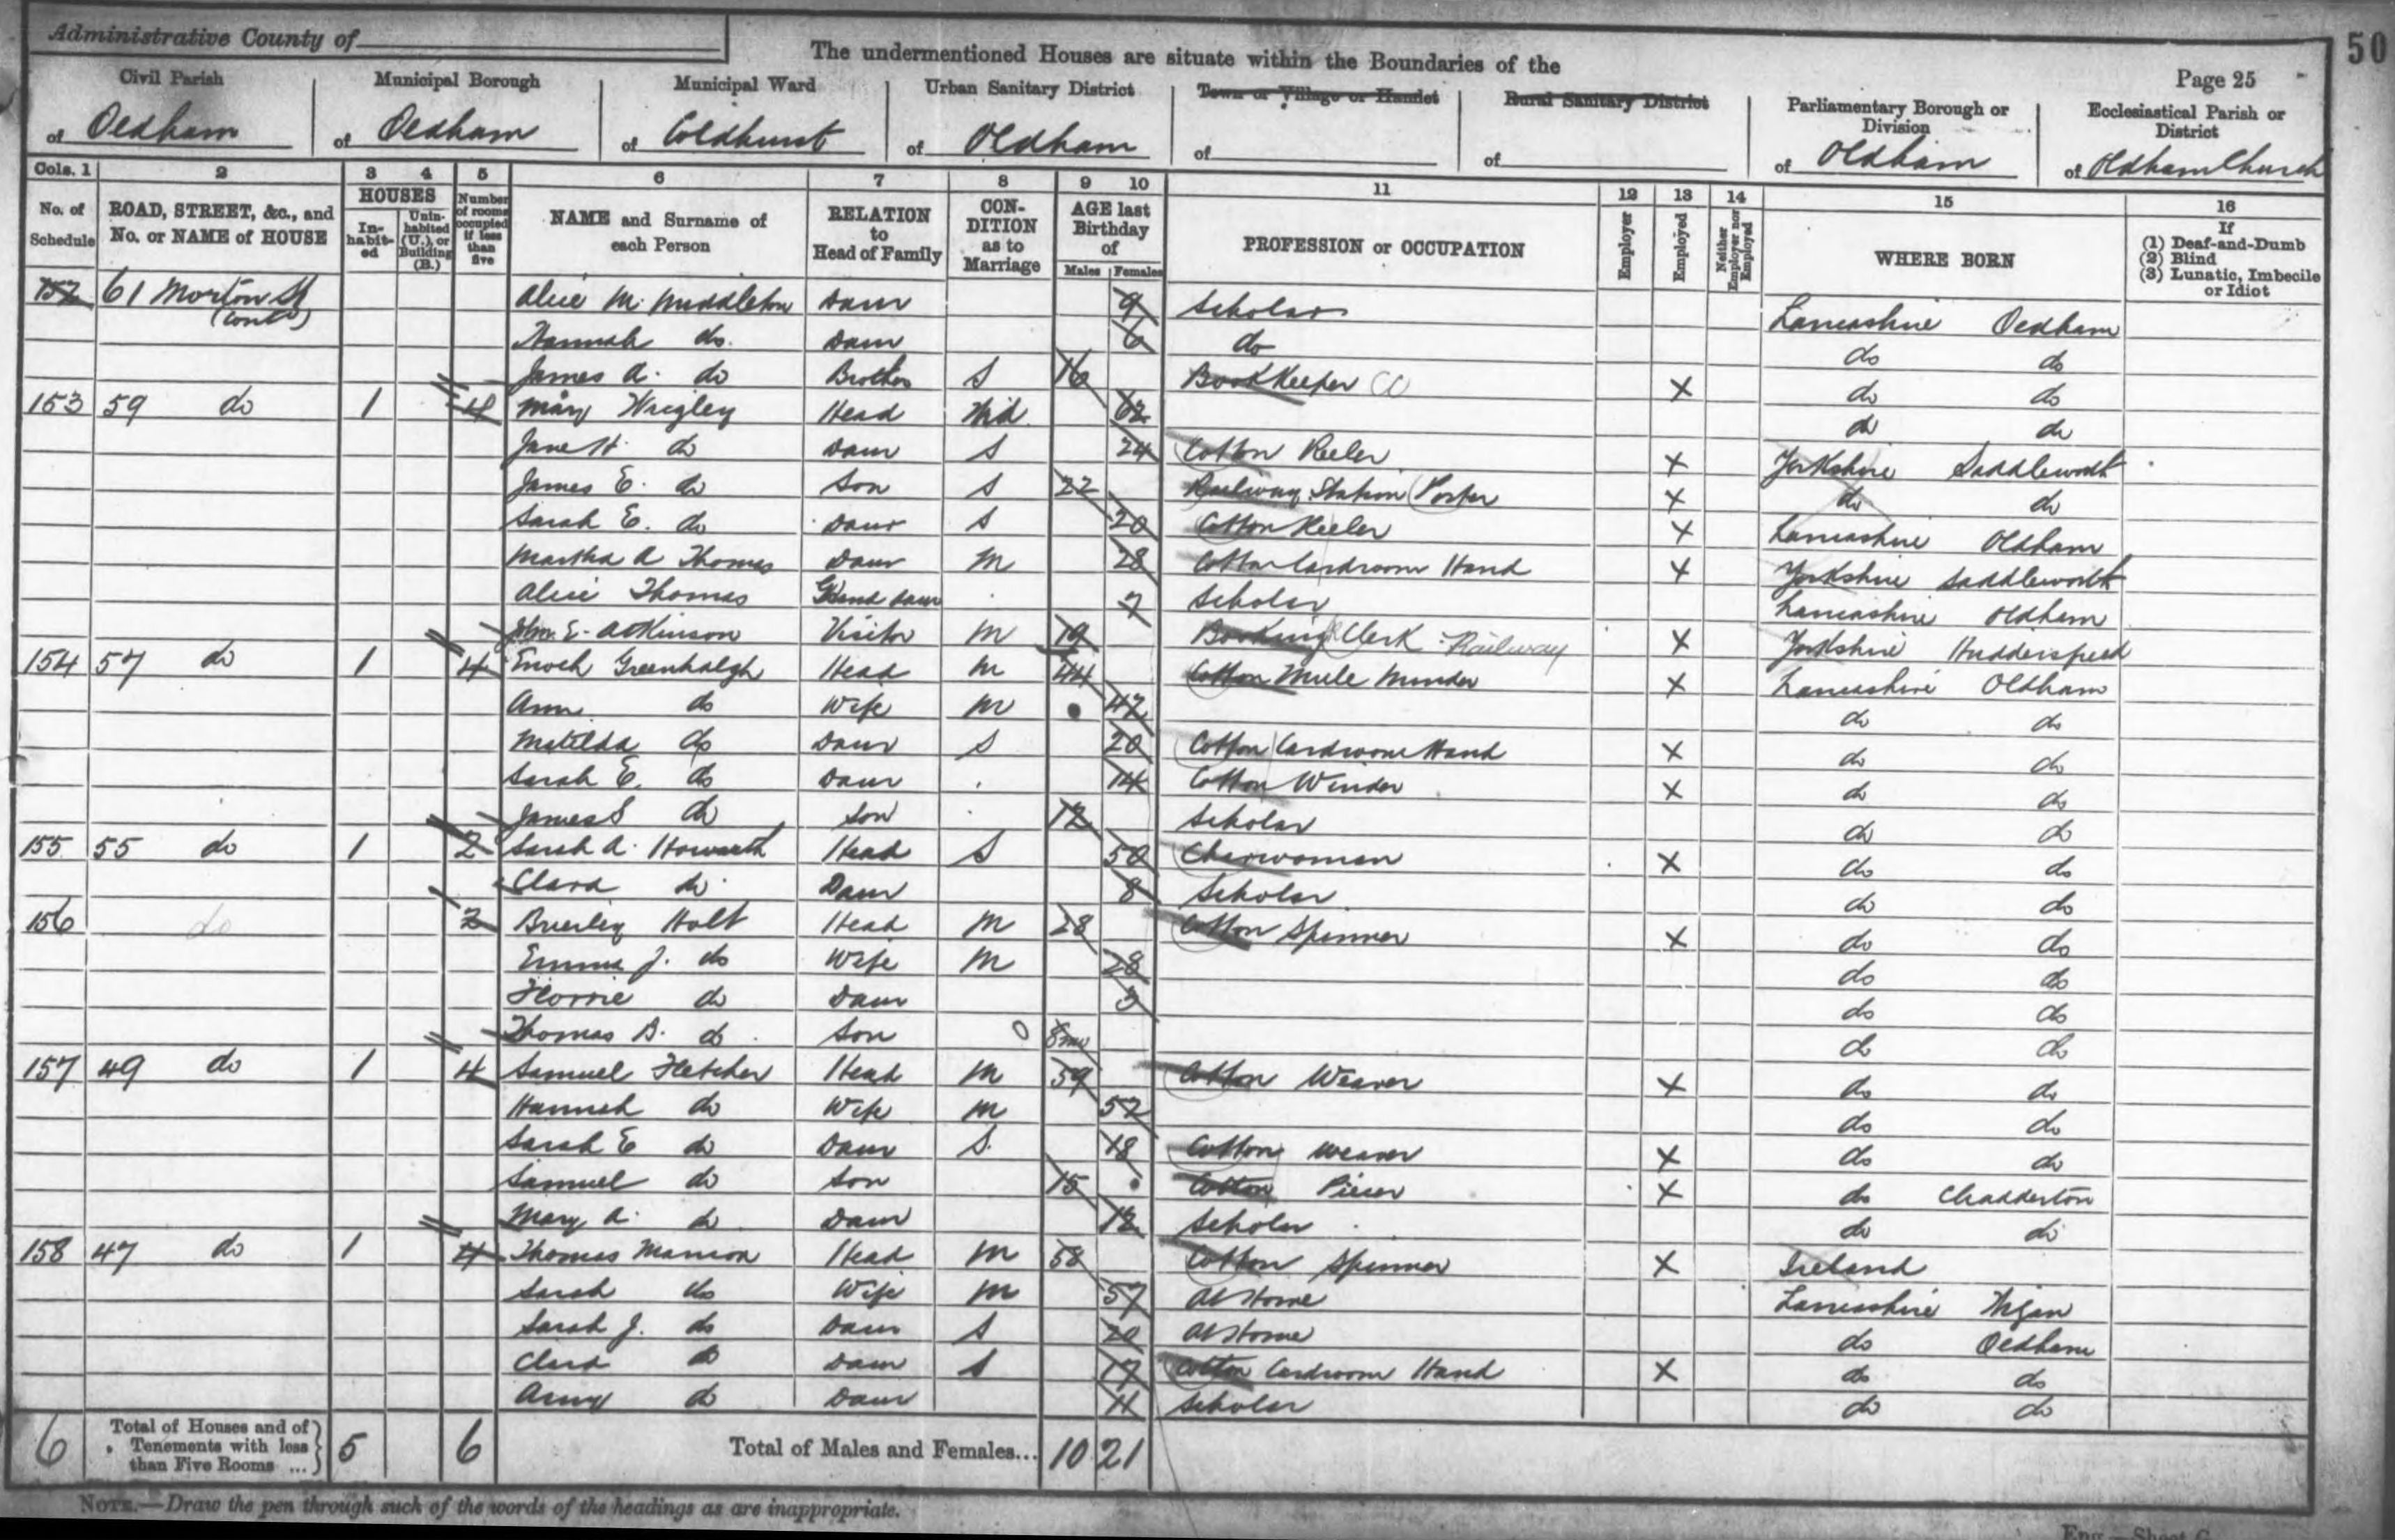 Administrative County of
The undermentioned Houses are situate within the Boundaries of the
50
Page 25
Civil Parish of Oldham
Municipal Borough of Oldham
Municipal Ward of Coldhurst
Urban Sanitary District of Oldham
Town or Village or Hamlet of
Rural Sanitary District of
Parliamentary Borough or Division of Oldham
Ecclesiastical Parish or District of Oldham Church
Cols. 1 2 3 4 5 6 7 8 9 10 11 12 13 14 15 16
No. of Schedule
ROAD, STREET, &c., and No. or NAME of HOUSE
HOUSES
In-habit-ed
Unin-habited (U.), or Building (B.)
Number of rooms occupied if less than five
NAME and Surname of each Person
RELATION to Head of Family
CON-DITION as to Marriage
AGE last Birthday of
Males Females
PROFESSION or OCCUPATION
Employer
Employed
Neither Employer nor Employed
WHERE BORN
If (1) Deaf-and-Dumb (2) Blind (3) Lunatic, Imbecile or Idiot
152 61 Morton St (contd) Alice M. Middleton Daur 9 Scholar Lancashire Oldham
Hannah do. Daur 6 do do do
James A. do Brother S 16 BookKeeper CC X do do
153 59 do 1 4 Mary Wrigley Head Wid. 62 do do
Jane H. do Daur S 24 Cotton Reeler X Yorkshire Saddleworth
James E. do Son S 22 Railway Station Porter X do do
Sarah E. do Daur S 20 Cotton Reeler X Lancashire Oldham
Martha A Thomas Daur M 28 Cotton Cardroom Hand X Yorkshire Saddleworth
Alice Thomas Grand daur 7 Scholar Lancashire Oldham
Wm. E. Atkinson Visitor M 19 Booking Clerk Railway X Yorkshire Huddersfield
154 57 do 1 4 Enoch Greenhalgh Head M 44 Cotton Mule Minder X Lancashire Oldham
Ann do Wife M 42 do do
Matilda do Daur S 20 Cotton Cardroom Hand X do do
Sarah E. do Daur 14 Cotton Winder X do do
James S do Son 12 Scholar do do
155 55 do 1 2 Sarah A. Howarth Head S 50 Charwoman X do do
Clara do Daur 8 Scholar do do
156 do 2 Brierley Holt Head M 28 Cotton Spinner X do do
Emma J. do Wife M 28 do do
Florrie do Daur 3 do do
Thomas B. do Son 8mo do do
157 49 do 1 4 Samuel Fletcher Head M 59 Cotton Weaver X do do
Hannah do Wife M 52 do do
Sarah E do Daur S. 18 Cotton Weaver X do do
Samuel do Son 15 Cotton Piecer X do Chadderton
Mary A. do Daur 12 Scholar do do
158 47 do 1 4 Thomas Manion Head M 58 Cotton Spinner X Ireland
Sarah do Wife M 57 At Home Lancashire Wigan
Sarah J. do Daur S 20 At Home do Oldham
Clara do Daur S 17 Cotton Cardroom Hand X do do
Amy do Daur 11 Scholar do do
6 Total of Houses and of Tenements with less than Five Rooms ... 5 6 Total of Males and Females... 10 21
NOTE.—Draw the pen through such of the words of the headings as are inappropriate.